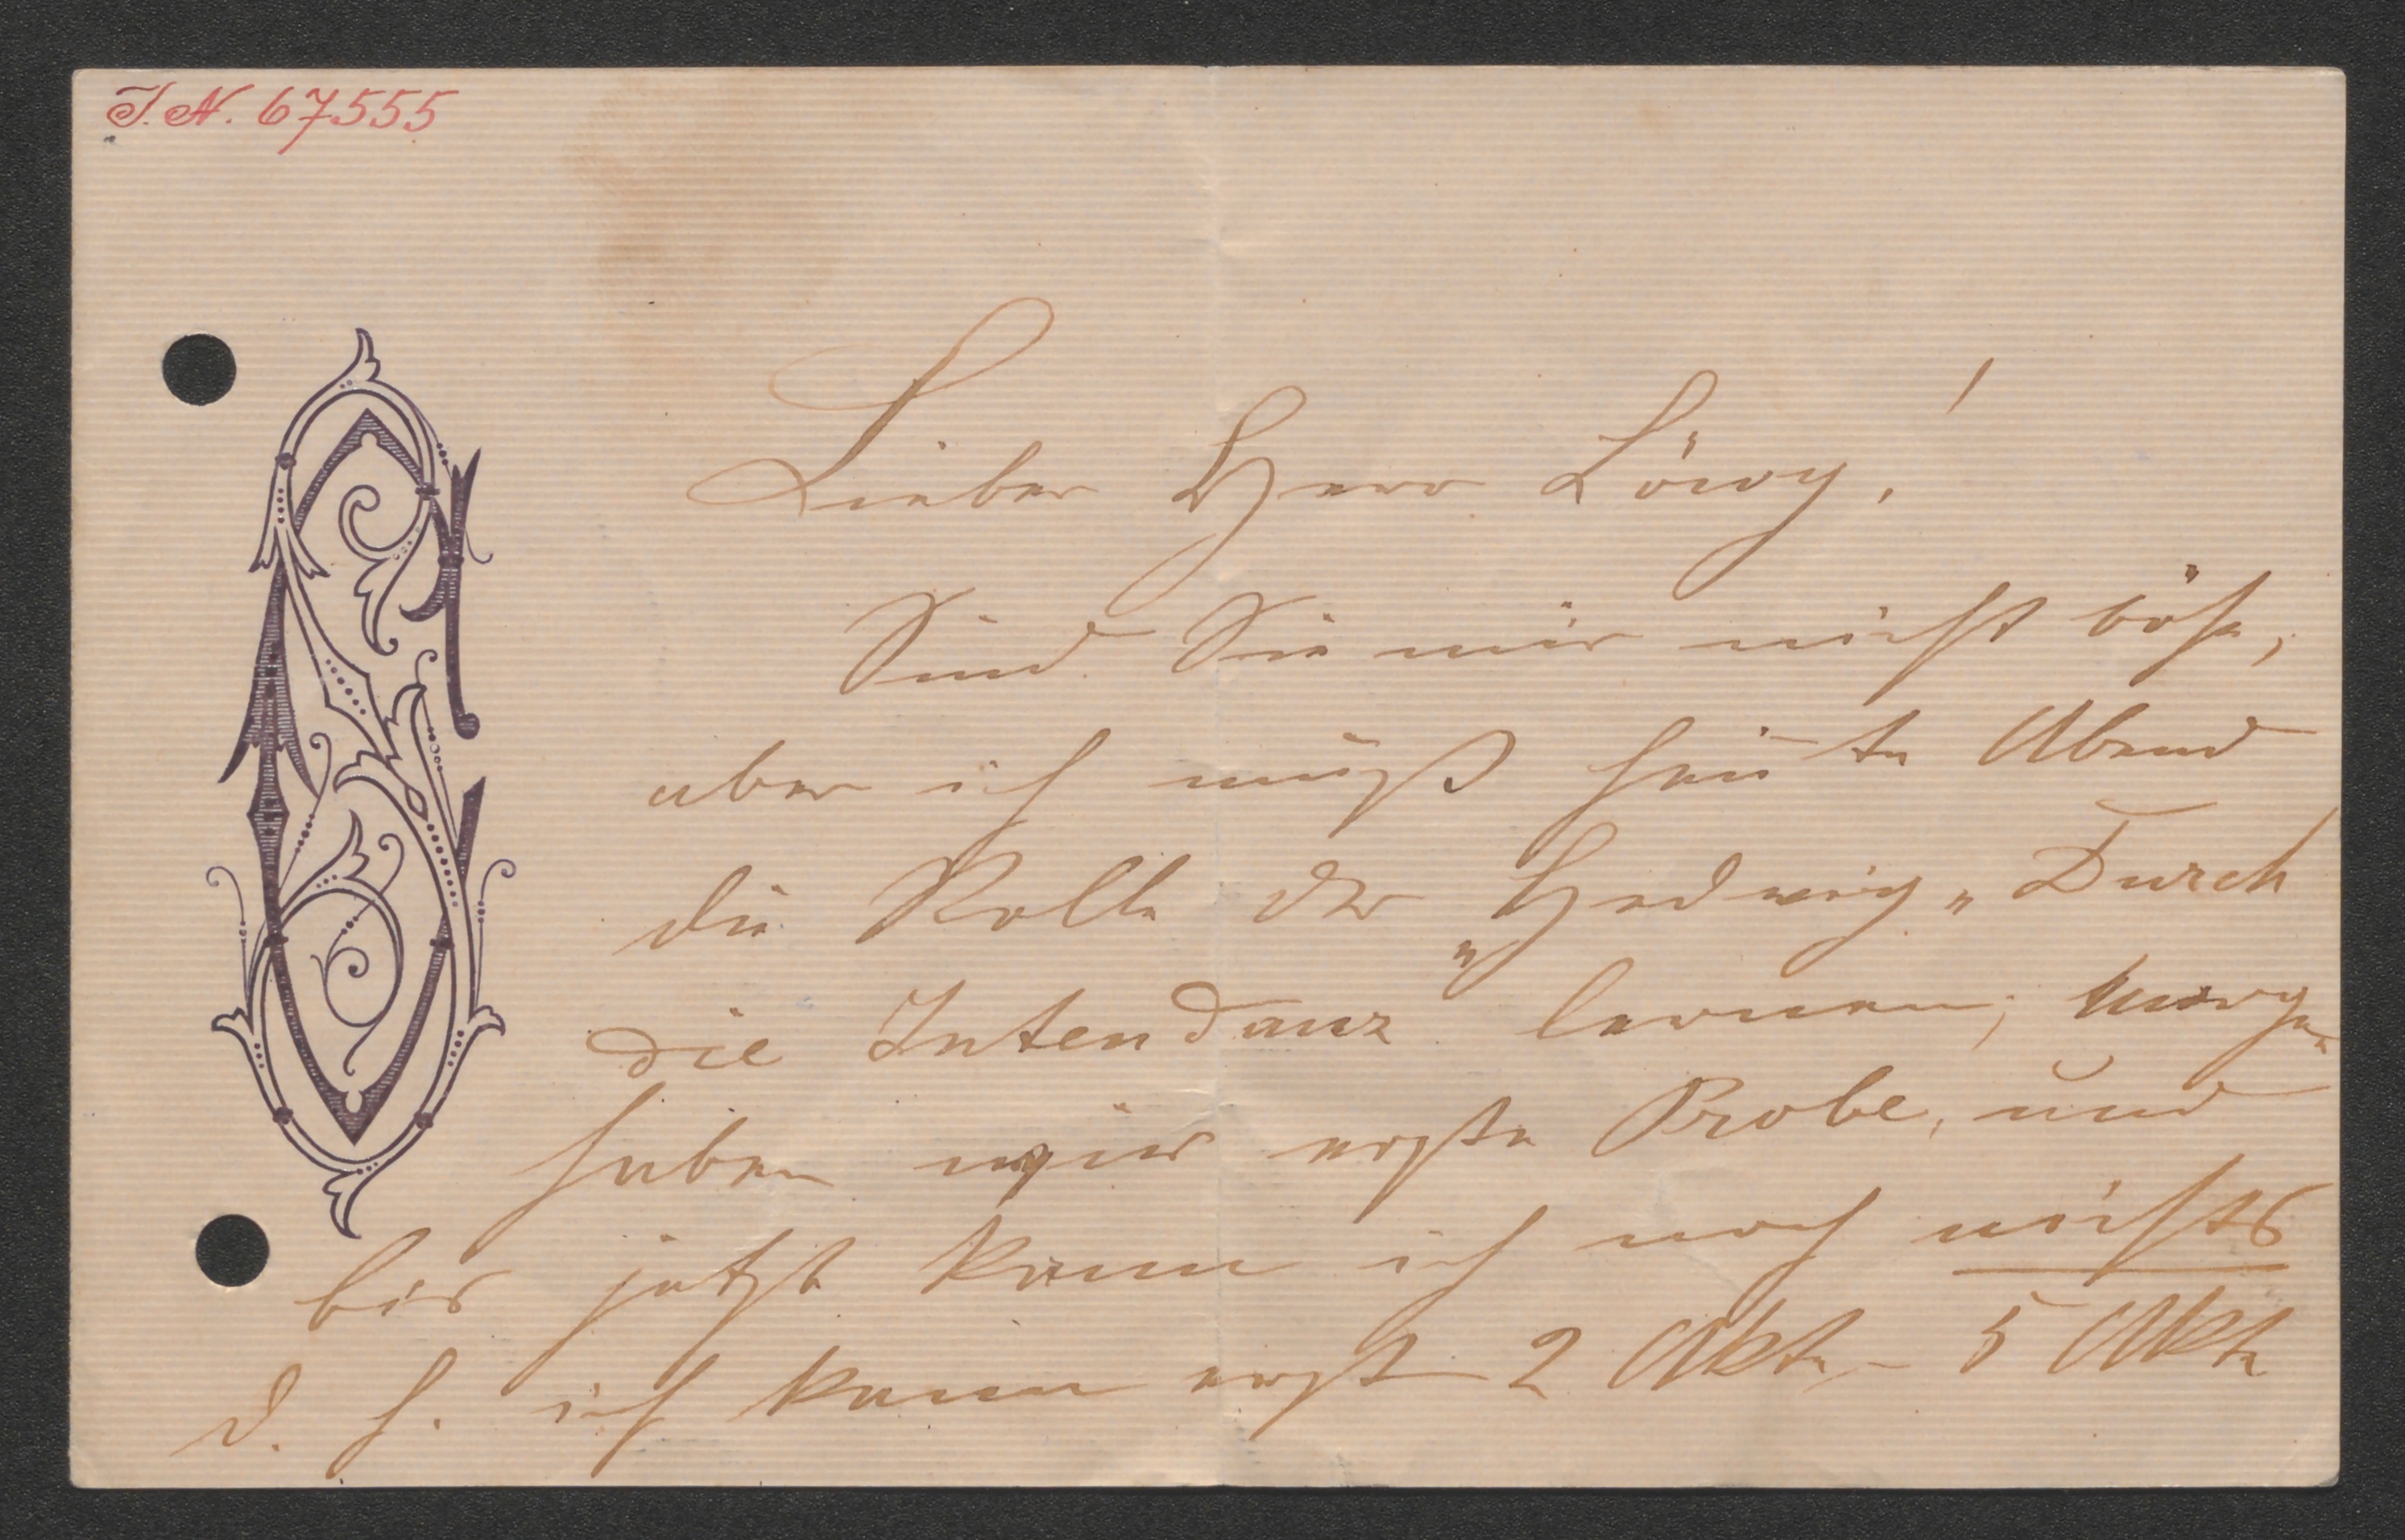 I.N. 67555
Lieber Herr Löwy!
Sind Sie mir nicht böse,
aber ich muß heute Abend
die Rolle der Hedwig „Durch
die Intendanz" lernen; Morgen
haben wir erste Probe, und
bis jetzt kann ich noch nichts
d. h. ich kann erst 2 Akte – 5 Akte